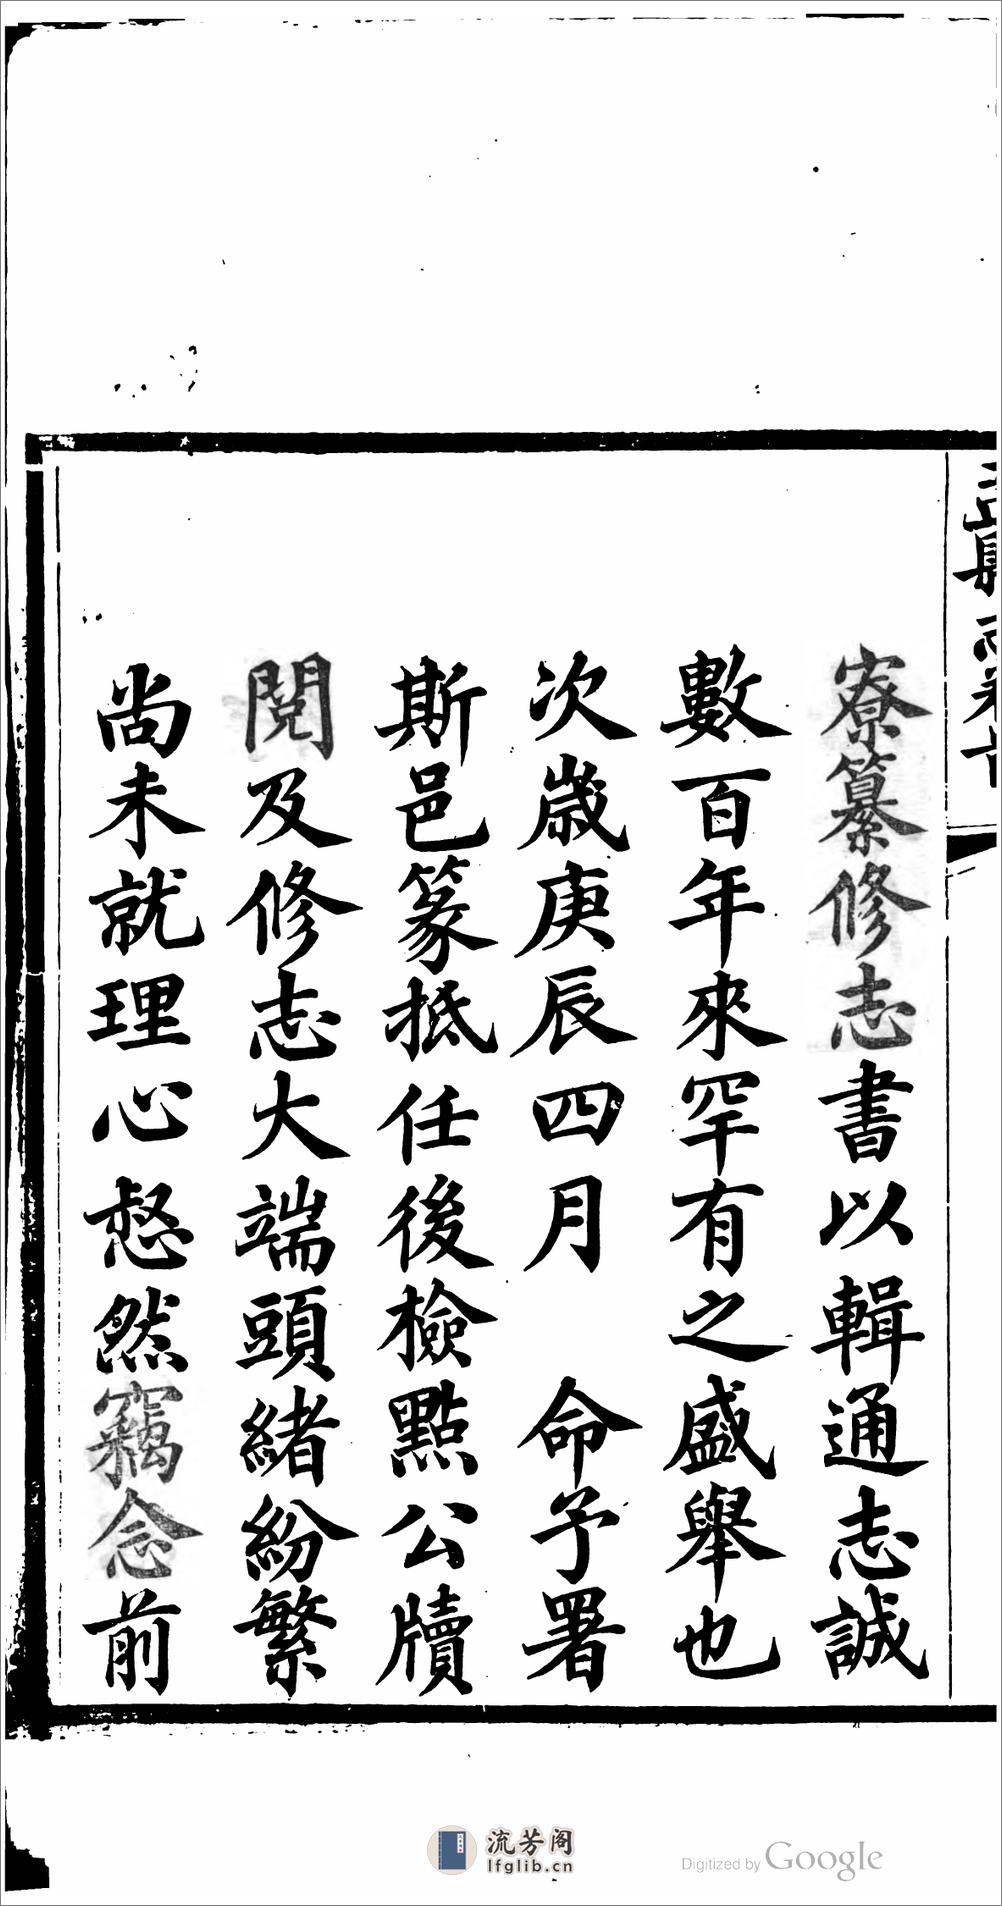 寮纂修志書以輯通志誠
數百年來罕有之盛舉也
次歲庚辰四月　命予署
斯邑篆抵任後檢點公牘
閱及修志大端頭緒紛繁
尚未就理心惄然竊念前
流芳阁
lfglib.cn
Digitized by Google